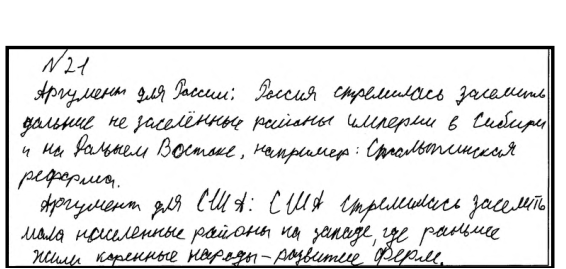 №21
Аргумент для России: Россия стремилась заселить
дальние не заселённые районы империи в Сибири
и на Дальнем Востоке, например: Столыпинская
реформа.
Аргумент для США: США стремились заселить
мало населенные районы на западе, где раньше
жили коренные народы - развитие ферм.